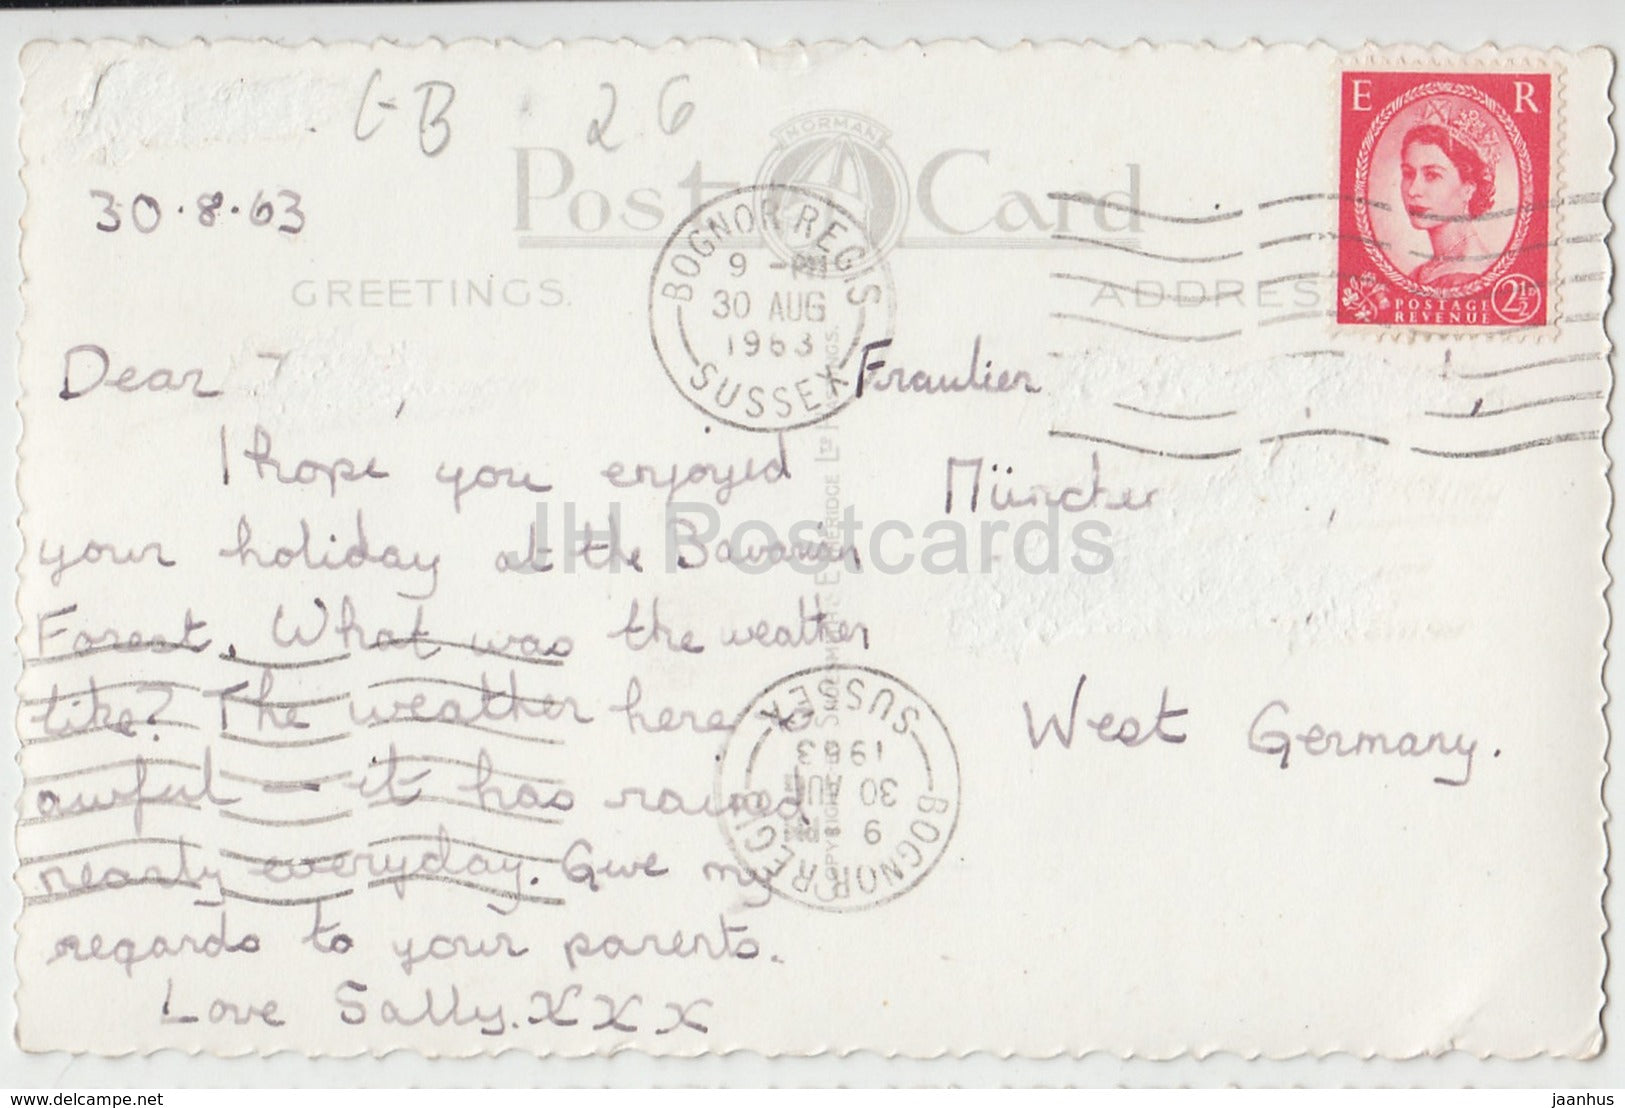 GB 26
30.8.63
NORMAN
Post Card
GREETINGS.
ADDRES
E R
POSTAGE
REVENUE
2½D
BOGNOR REGIS
9 - PM
30 AUG
1963
SUSSEX
Dear ,
I hope you enjoyed
your holiday at the Bavarian
Forest. What was the weather
like? The weather here is
awful - it has rained
nearly everyday. Give my
regards to your parents.
Love Sally. X X X
Fraulien
München
West Germany.
BOGNOR REGIS
9 PM
30 AUG
1963
SUSSEX
JH Postcards
delcampe.net
jaanhus